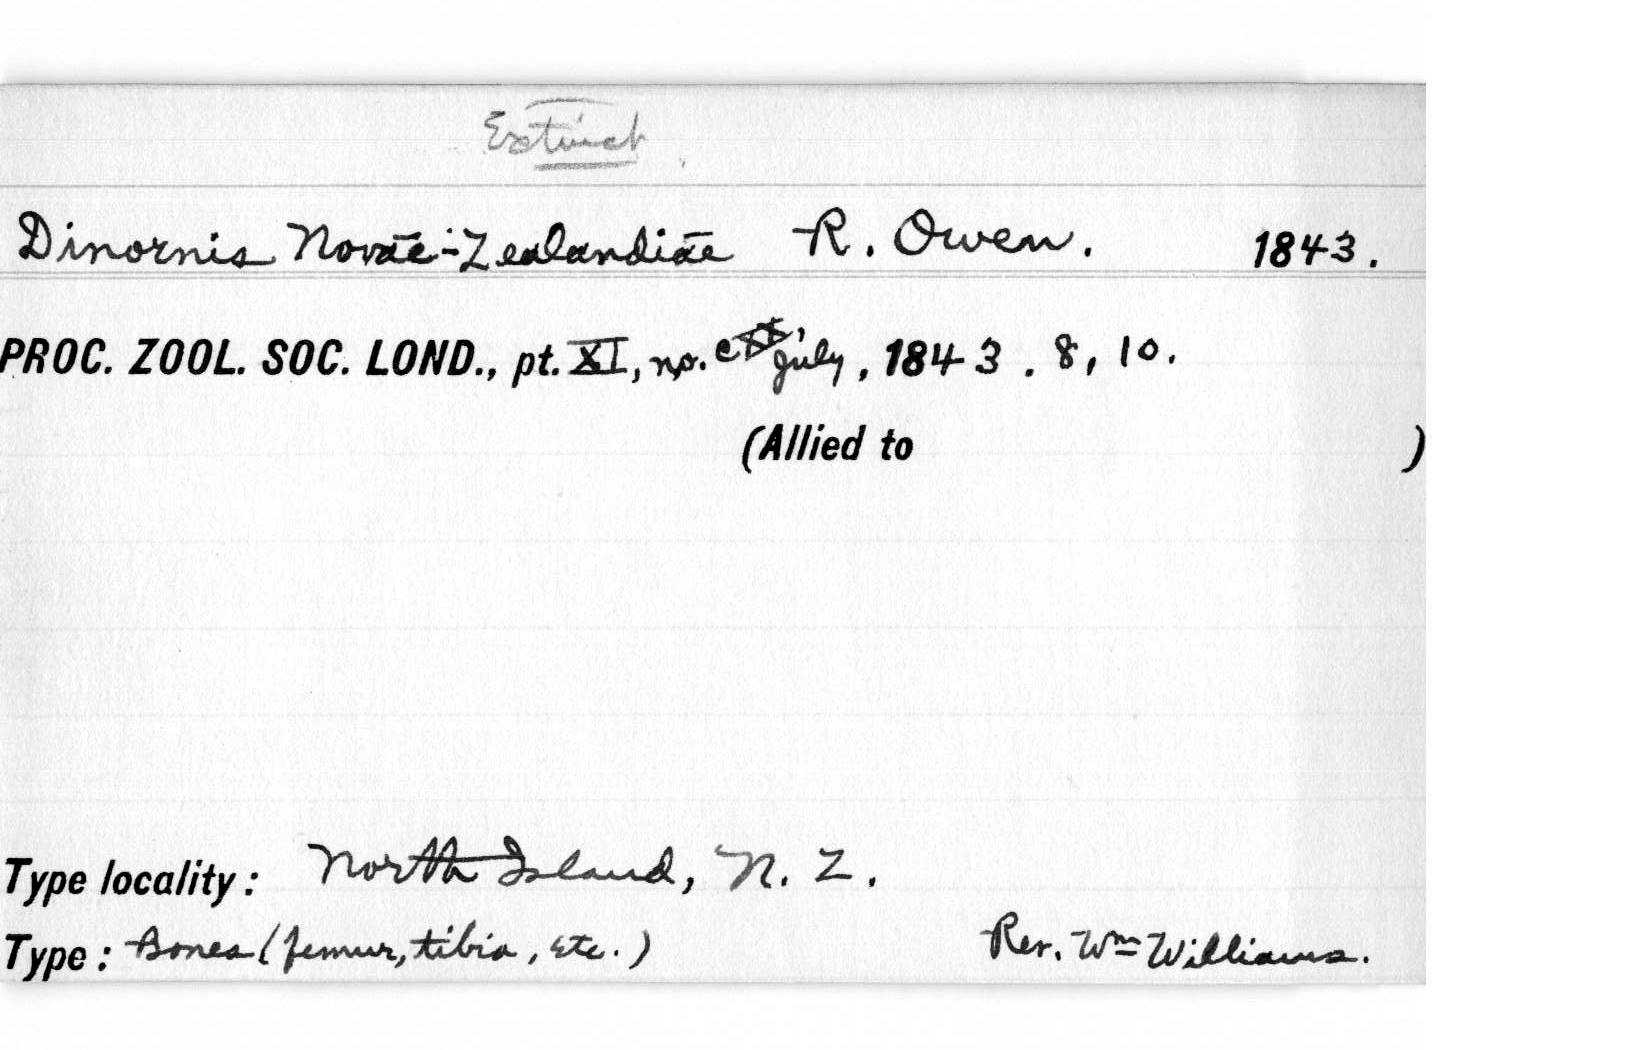 Extinct
Dinornis Novae-Zealandiae R. Owen. 1843.
PROC. ZOOL. SOC. LOND., pt. XI, no. July, 1843. 8, 10.
(Allied to )
Type locality: North Island, N. Z.
Type: Bones (femur, tibia, etc.) Rev. Wm Williams.